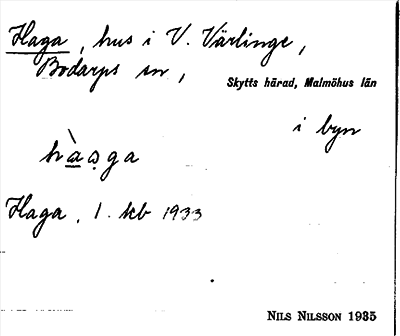 Haga, hus i V. Värlinge,
Bodarps sn,
Skytts härad, Malmöhus län
i byn
hàạga
Haga, 1. kb 1933
NILS NILSSON 1935